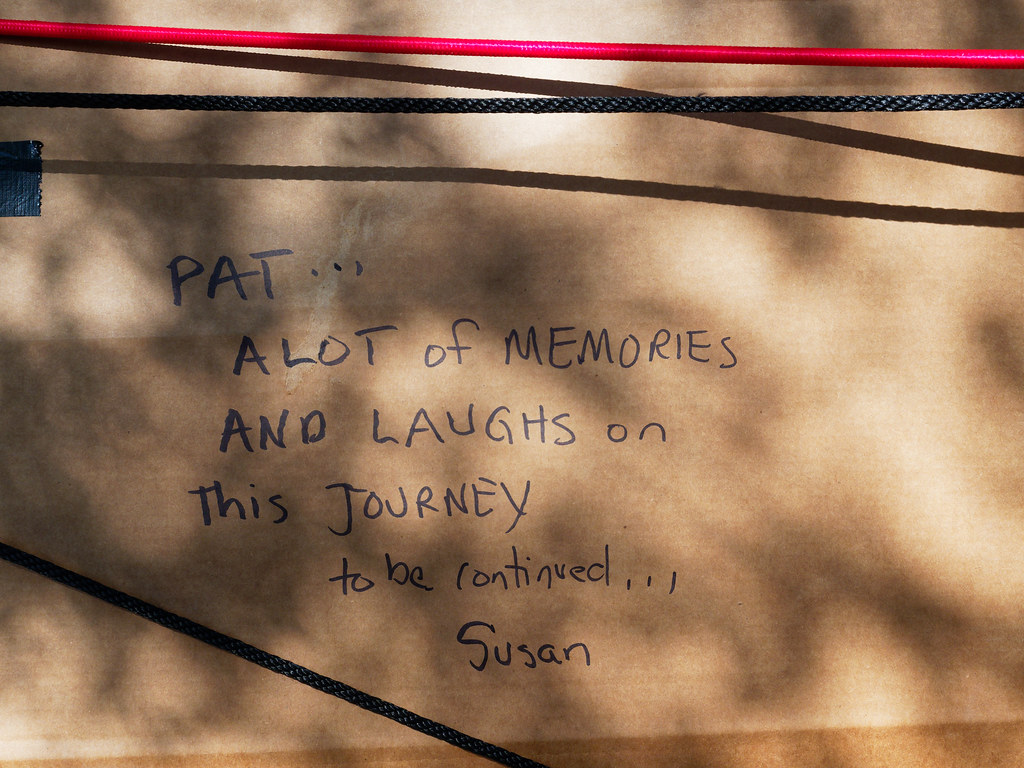 PAT...
A LOT of MEMORIES
AND LAUGHS on
This JOURNEY
to be continued...
Susan